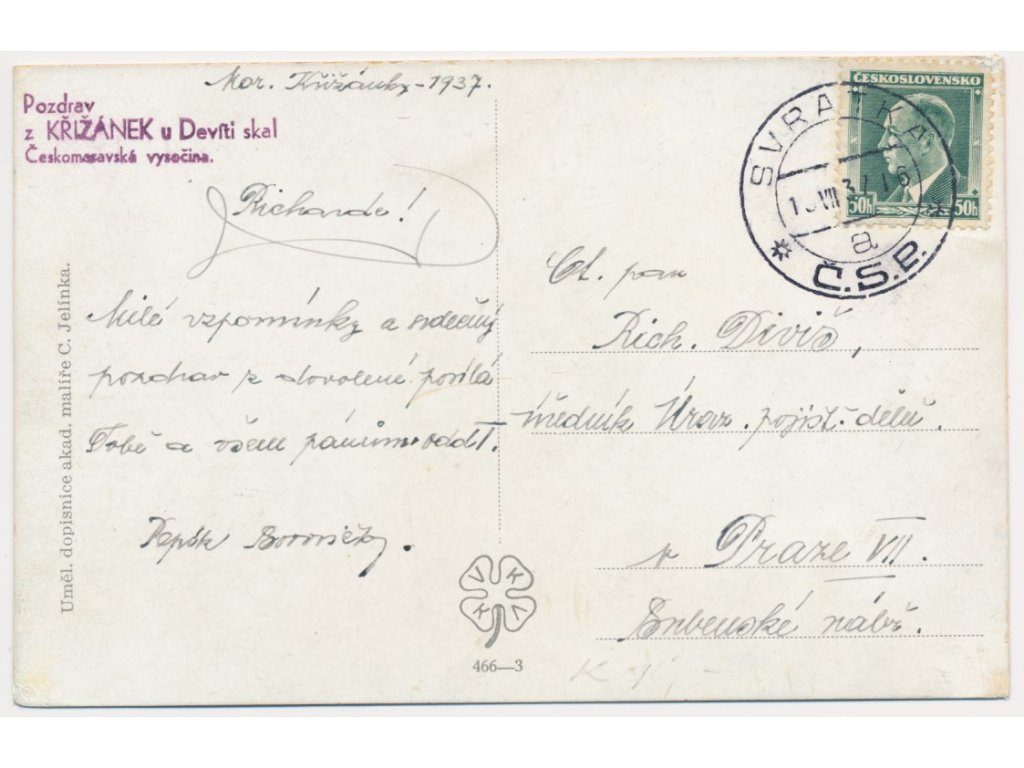 Mor. Křižánky - 1937.
Pozdrav
z KŘIŽÁNEK u Devíti skal
Českomoravská vysočina.
Richarde!
Milé vzpomínky a srdečný
pozdrav z dovolené posílá
Tobě a všem pánům odděl.
Pepík
Uměl. dopisnice akad. malíře C. Jelínka.
V K K V
466—3
ČESKOSLOVENSKO
50h 50h
SVRATKA
VII 37
a
Č.S.P.
Ct. pan
Rich. Diviš,
úředník Úraz. pojišť. děln.
v Praze VII.
nábř.